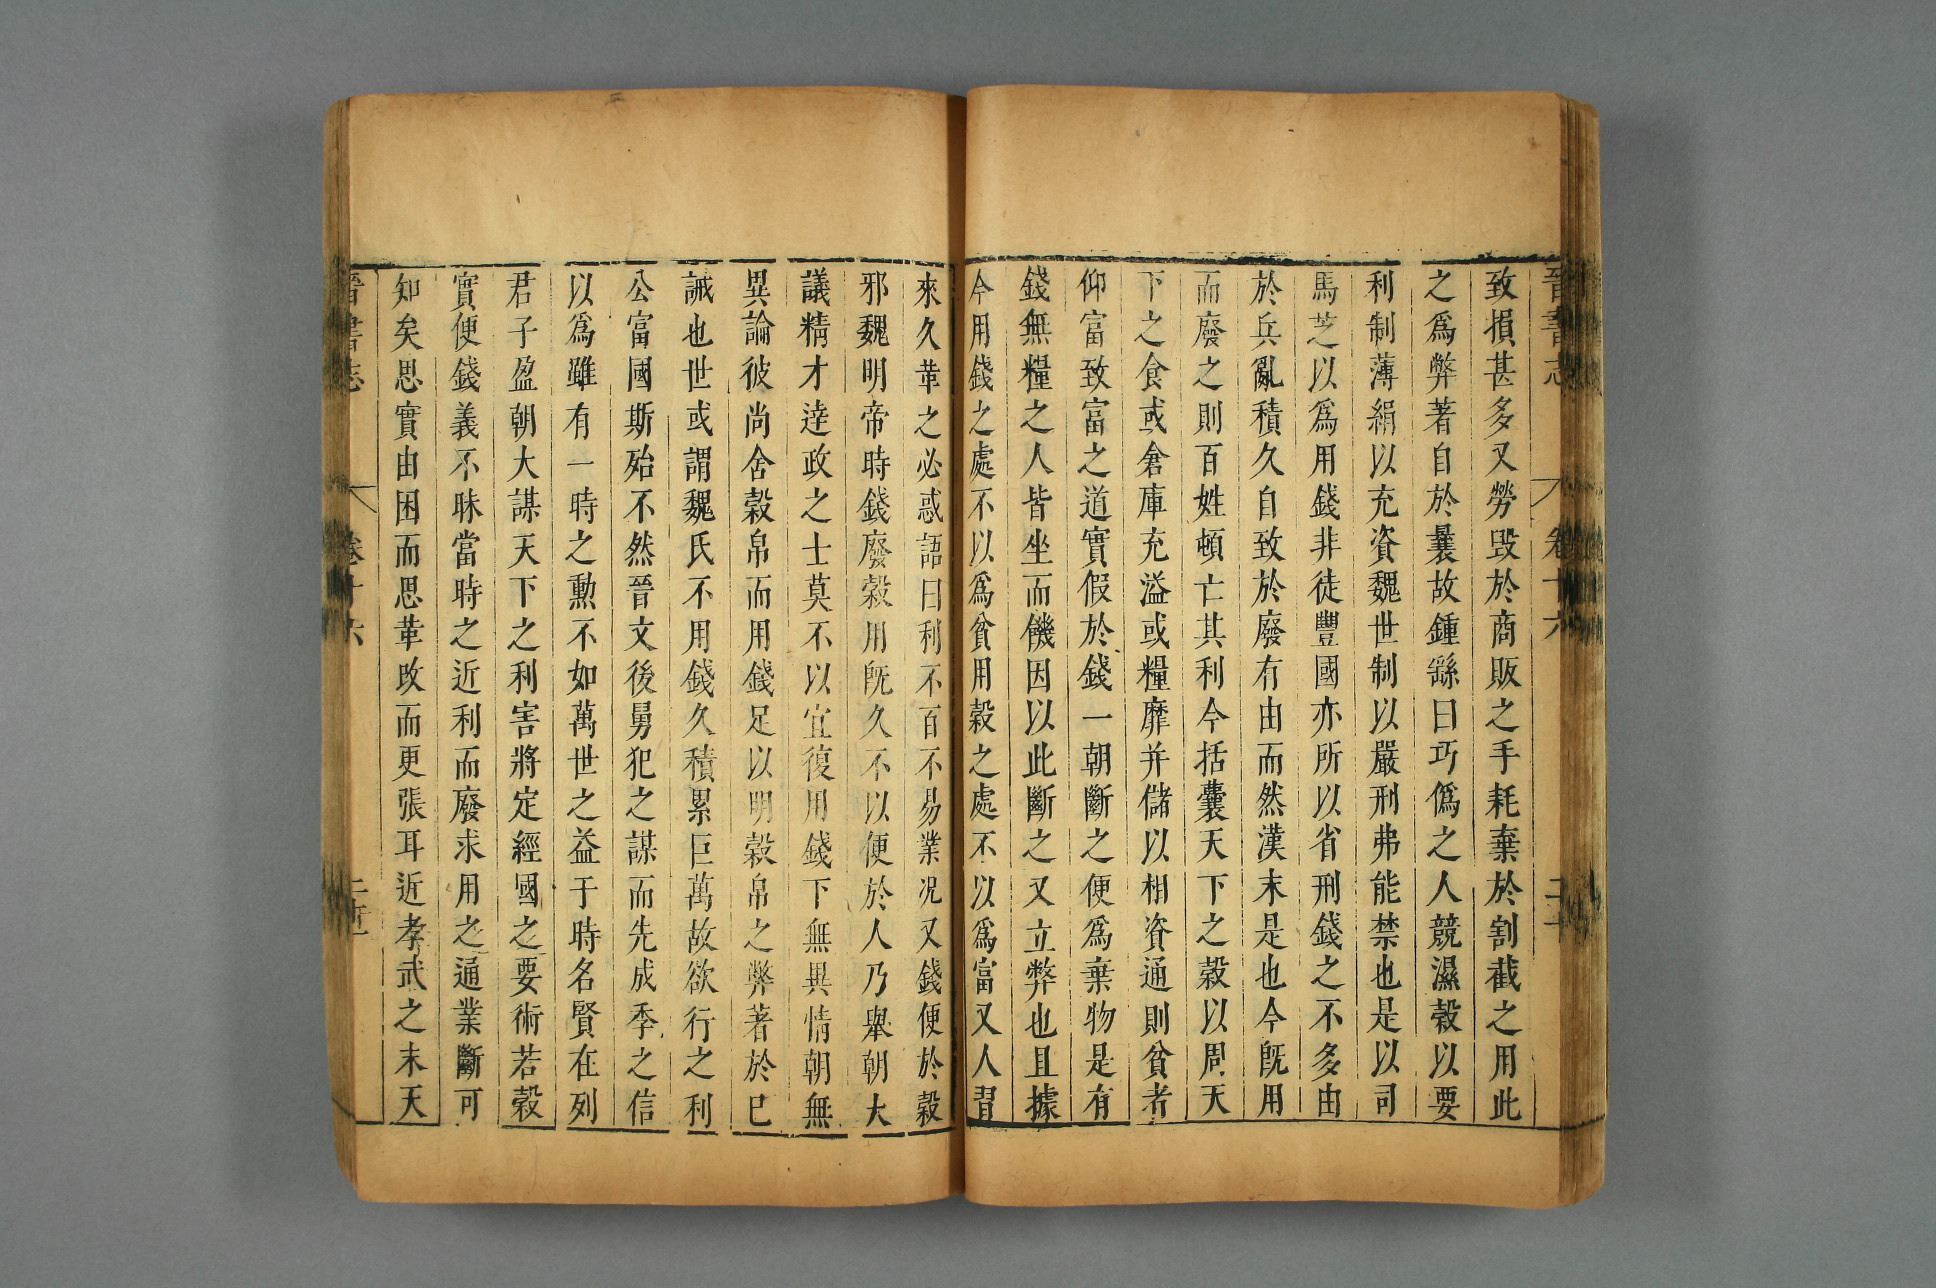 致損甚多又勞毀於商販之手耗棄於割截之用此
之為弊著自於曩故鍾繇曰巧僞之人競濕穀以要
利制薄絹以充資魏世制以嚴刑弗能禁也是以司
馬芝以為用錢非徒豐國亦所以省刑錢之不多由
於兵亂積久自致於廢有由而然漢末是也今旣用
而廢之則百姓頓亡其利今括囊天下之穀以周天
下之食或倉庫充溢或糧靡并儲以相資通則貧者
仰富致富之道實假於錢一朝斷之便為棄物是有
錢無糧之人皆坐而饑因以此斷之又立弊也且據
今用錢之處不以為貧用穀之處不以為富又人習
來久革之必惑語曰利不百不易業况又錢便於穀
邪魏明帝時錢廢穀用旣久不以便於人乃舉朝大
議精才達政之士莫不以宜復用錢下無異情朝無
異論彼尚舍穀帛而用錢足以明穀帛之弊著於已
誡也世或謂魏氏不用錢久積累巨萬故欲行之利
公富國斯殆不然晉文後舅犯之謀而先成季之信
以為雖有一時之勲不如萬世之益于時名賢在列
君子盈朝大謀天下之利害將定經國之要術若穀
實便錢義不昧當時之近利而廢永用之通業斷可
知矣思實由困而思革改而更張耳近孝武之末天
晉書志
卷十六